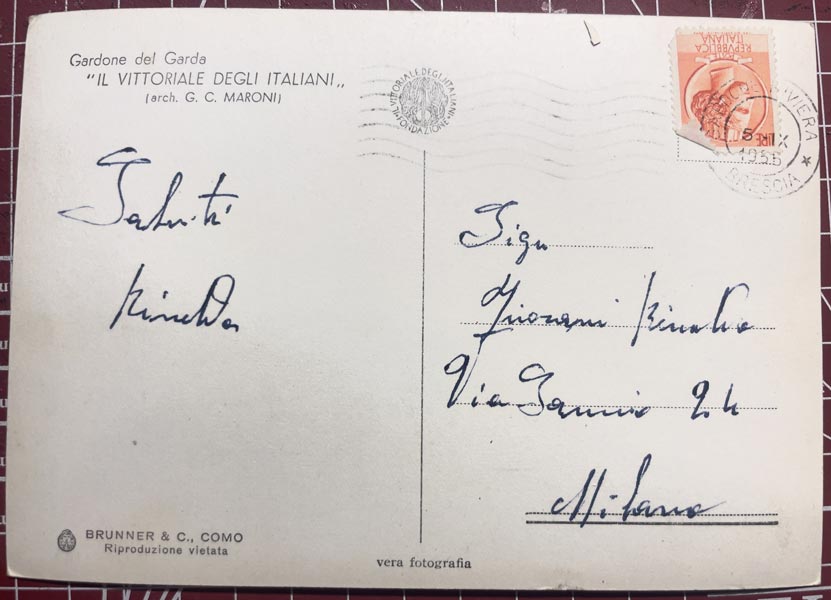 Gardone del Garda
"IL VITTORIALE DEGLI ITALIANI„
(arch. G. C. MARONI)
IL VITTORIALE DEGLI ITALIANI
FONDAZIONE
REPVBBLICA
ITALIANA
LIRE
RIVIERA
5 IX
1956
BRESCIA
Saluti
Rinaldo
Sign
Giovani Rinaldo
Via Sannio 24
Milano
BRUNNER & C., COMO
Riproduzione vietata
vera fotografia